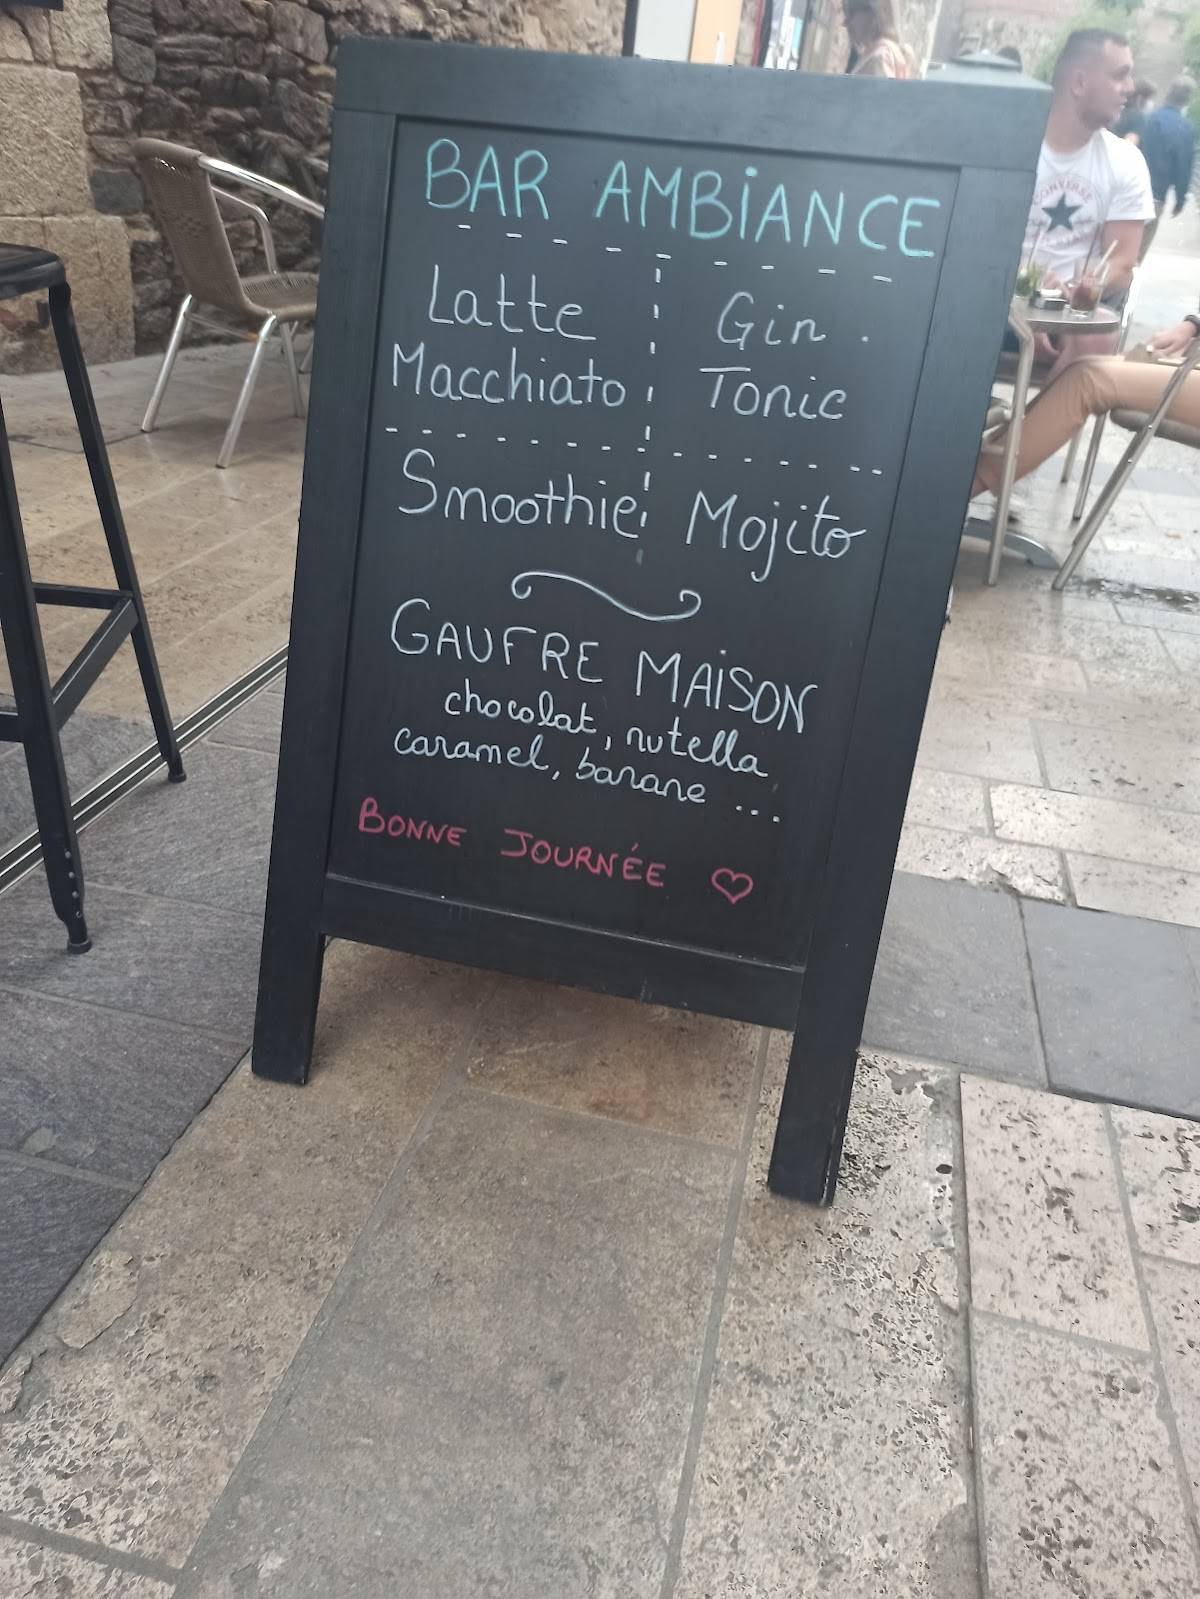 BAR AMBiANCE
Latte
Macchiato
Gin
Tonic
Smoothie
Mojito
GAUFRE MAiSON
chocolat, nutella
caramel, banane ...
BONNE JOURNÉE ♡
CONVERSE